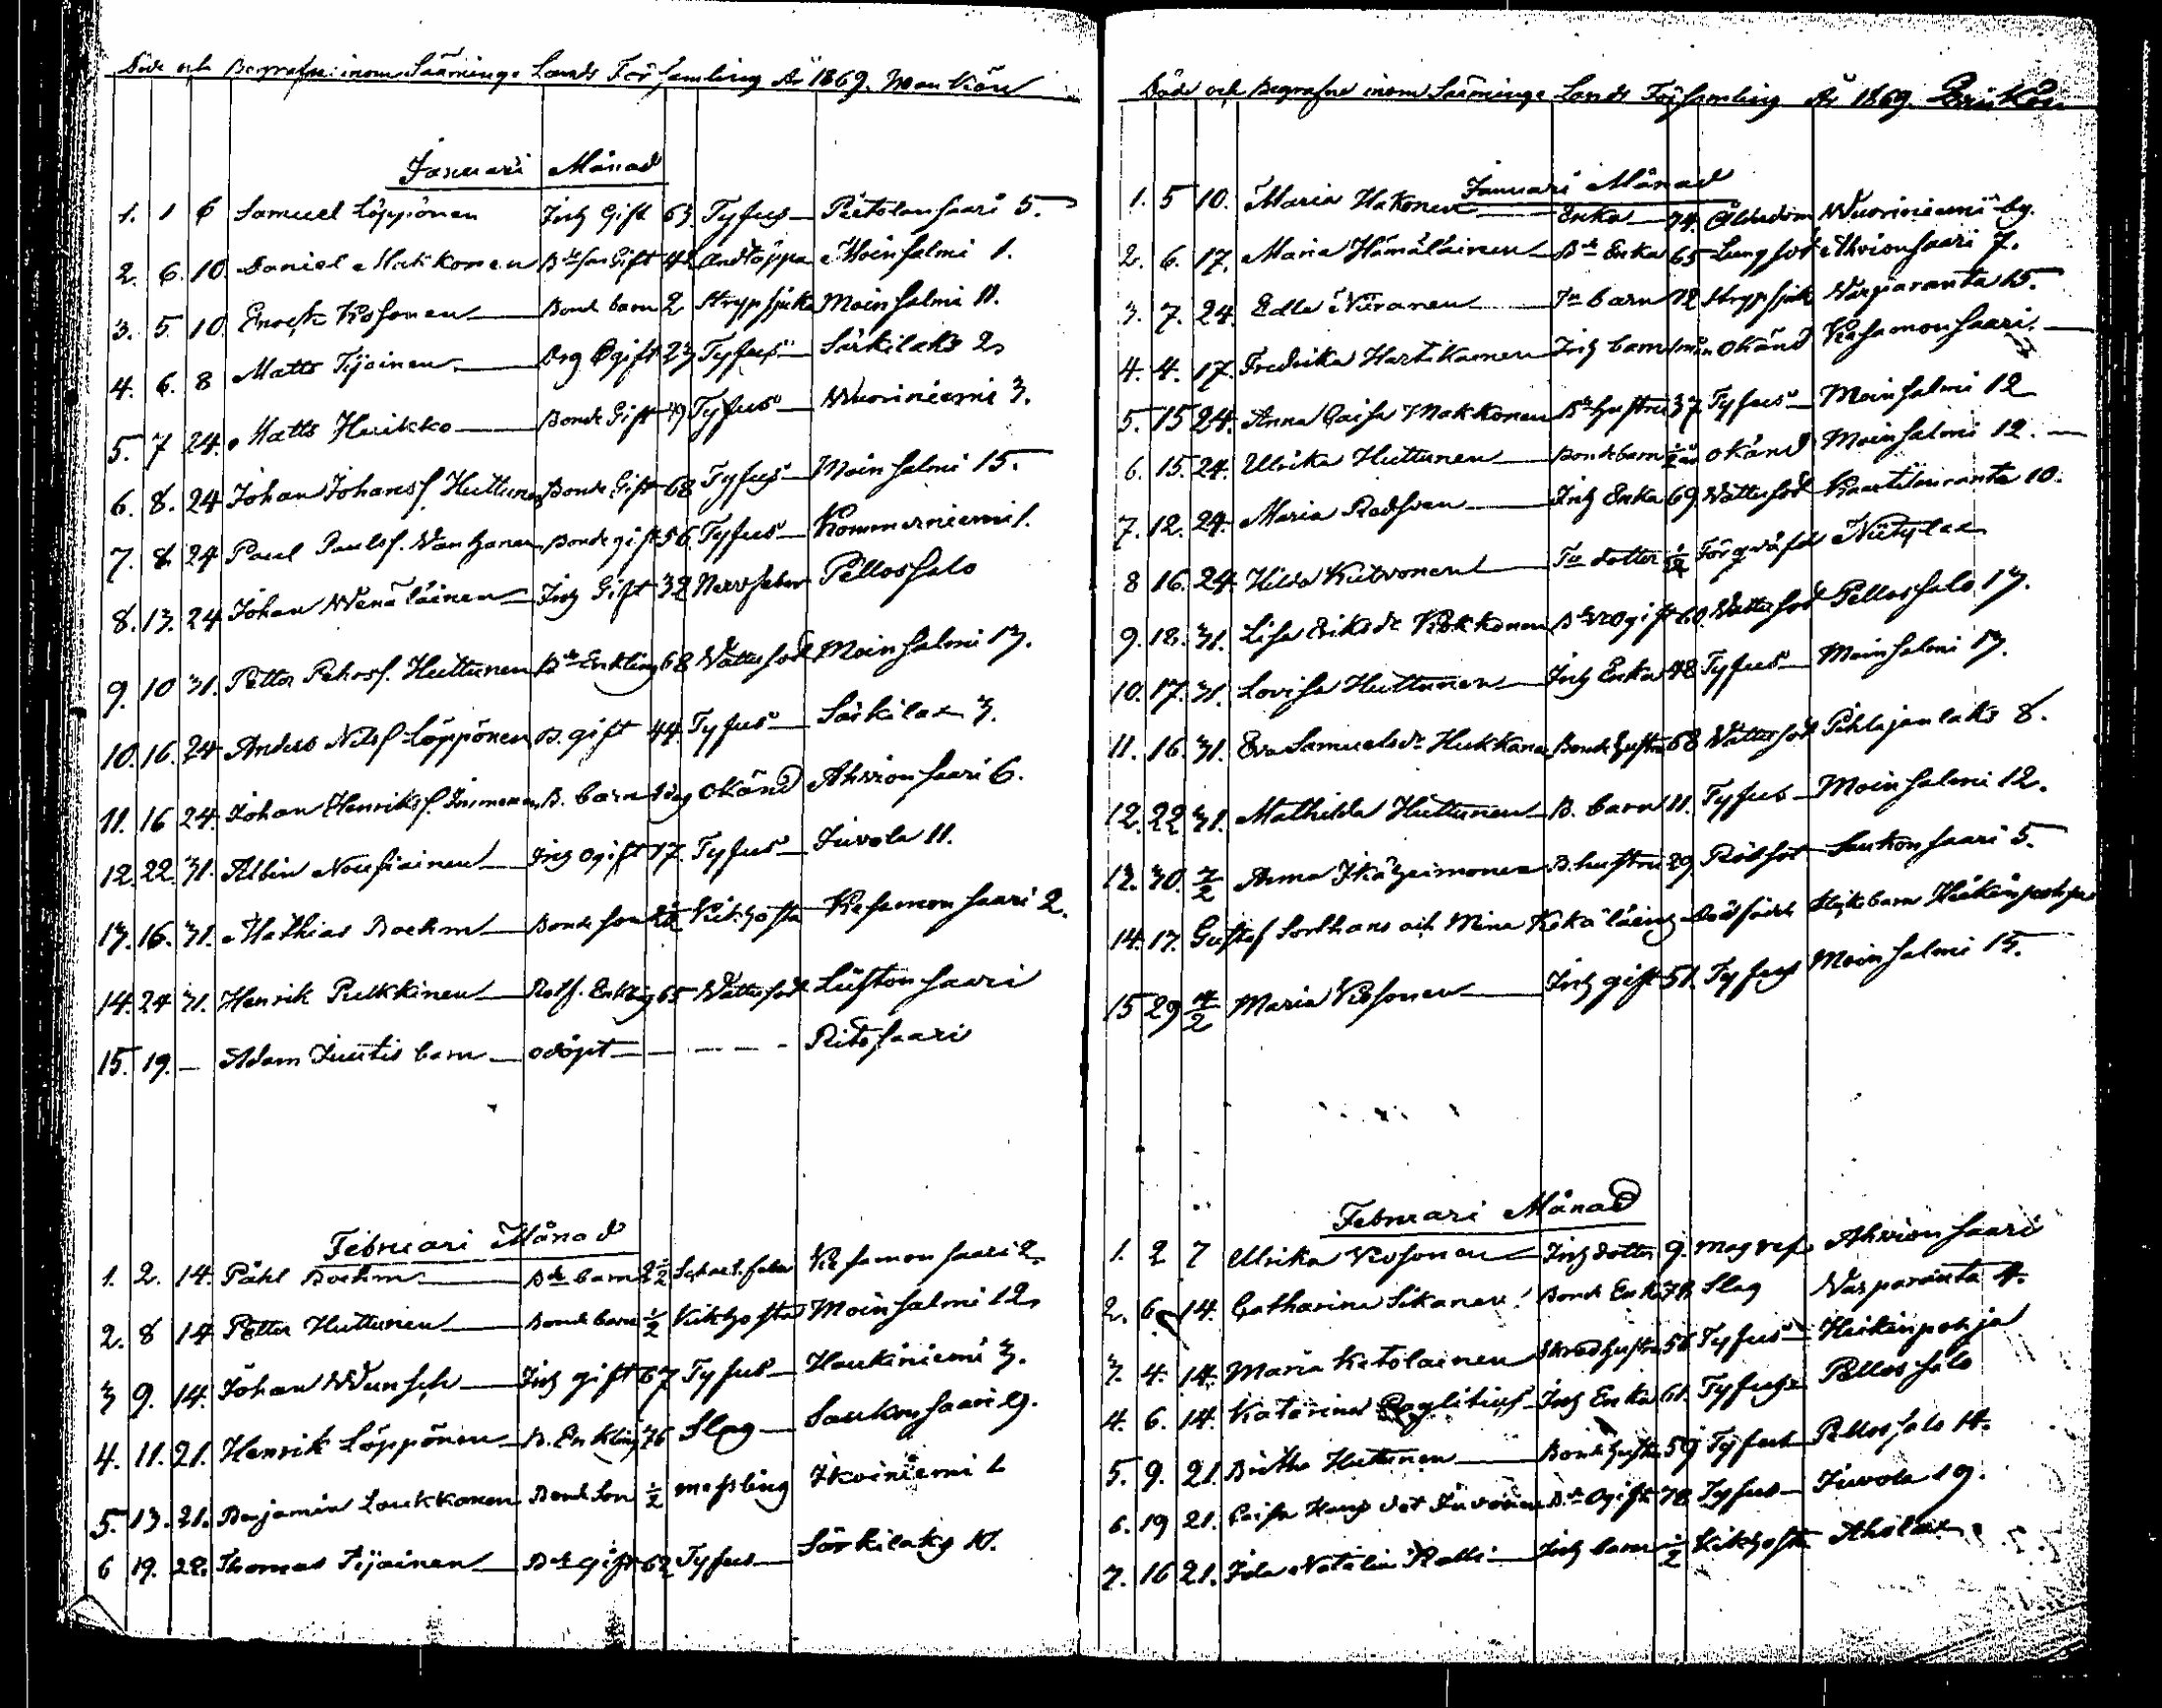 Döde och Begrafne inom Sääminge Lands Församling År 1869. Man Kön
Januari Månad
1. 1 6 Samuel Löppönen Inh Gift 63. Tyfus Pietolansaari 5.
2. 6. 10. Daniel Makkonen Bde son Gift 42 Andtäppa Moinsalmi 1.
3. 5. 10. Enoch Kosonen Bond barn 2 Strypsjuka Moinsalmi 11.
4. 6. 8 Matts Tijainen Drg Ogift 23 Tyfus Särkilaks 2
5. 7 24. Matts Huikko Bonde Gift 49 Tyfus Wuoriniemi 3.
6. 8. 24 Johan Johansf. Huttunen Bonde Gift 68 Tyfus Moinsalmi 15.
7. 8. 24 Paul Paulsf. Wanhanen Bonde gift 56. Tyfus Kommerniemi 1.
8. 13. 24 Johan Wenäläinen Inh Gift 32 Nervfeber Pellossalo
9. 10 31. Petter Pehrsf. Huttunen Bde Enkling 68 Wattusot Moinsalmi 13.
10. 16. 24 Anders Nilsf. Löppönen B. gift 44. Tyfus Särkilax 3.
11. 16 24. Johan Henriksf. Immonen B. barn 1 dag okänd Ahvionsaari 6.
12. 22. 31. Albin Nousiainen Inh Ogift 17. Tyfus Juvola 11.
13. 16. 31. Mathias Boehm Bonde son Kikhosta Kesamonsaari 2.
14. 24 31. Henrik Pulkkinen Rotf. Enkling 65 Wattusot Liistonsaari
15. 19. — Adam Juutis barn odöpt — — — Ritosaari
Februari Månad
1. 2. 14. Påhl Boehm Bde barn 2½ Scharl. feber Kesamonsaari 2
2. 8 14 Petter Huttunen Bonde barn ½ Kikhosta Moinsalmi 12
3 9. 14. Johan Wunsch Inh gift 67 Tyfus Haukiniemi 3.
4. 11. 21. Henrik Löppönen B. Enkling 76 Slag Saukonsaari 9.
5. 13. 21. Benjamin Laukkanen Bonde Son ½ messling Ikoiniemi 1
6 19. 28. Thomas Tijainen Bde gift 62 Tyfus Särkilaks 10.
Döde och Begrafne inom Sääminge Lands Församling År 1869. Qvinkön
Januari Månad
1. 5 10. Maria Hakonen Enka 74. Ålderdom Wuoriniemi by.
2. 6. 17. Maria Hämäläinen Bde Enka 65 Lungsot Ahvionsaari 7.
3. 7. 24. Edla Niiranen Tu barn 12 Strypsjuk Warparanta 15.
4. 4. 17. Fredrika Hartikainen Inh barn 1 mån okänd Kesamonsaari
5. 15 24. Anna Caisa Makkonen Bde hustru 37 Tyfus Moinsalmi 12
6. 15. 24. Ulrika Huttunen Bonde barn ½ år okänd Moinsalmi 12.
7. 12. 24. Maria Redsven Inh Enka 69. Wattusot Kaartilanranta 10.
8 16. 24. Hilda Kutvonen Tu dotter ½ Förqväfd Niitylax
9. 18. 31. Lisa Eriksdr Kokkonen Ogift 60. Wattusot Pellossalo 13.
10. 17. 31. Lovisa Huttunen Inh Enka 48 Tyfus Moinsalmi 13.
11. 16. 31. Eva Samuelsdr Hukkanen Bonde hustru 68 Wattusot Pihlajanlaks 8.
12. 22 31. Mathilda Huttunen B. barn 11. Tyfus Moinsalmi 12.
13. 30. 7/2 Anna Ikäheimonen B. hustru 29 Rödsot Saukonsaari 5.
14. 17. Gustaf Sorthans och Mina Kokäläing Dödfödde Flickebarn Heikinpohja
15 29 7/2 Maria Kosonen Inh gift 51. Tyfus Moinsalmi 15.
Februari Månad
1. 2 7 Ulrika Kosonen Inh dotter 9. Magref Ahvionsaari
2. 6. 14. Catharina Sikanen Bond Enka 78. Slag Warparanta 4.
3. 4. 14. Maria Ketolainen Skräd hustru 56 Tyfus Heikinpohja
4. 6. 14. Katarina Inh Enka 61. Tyfus Pellossalo
5. 9. 21. Britha Huttunen Bonde hustru 59 Tyfus Pellossalo 14.
6. 19 21. Caisa Juvonen Bde Ogift 78 Tyfus Juvola 19.
7. 16 21. Ida Natalia Ralli Inh barn ½ Kikhosta Aholax